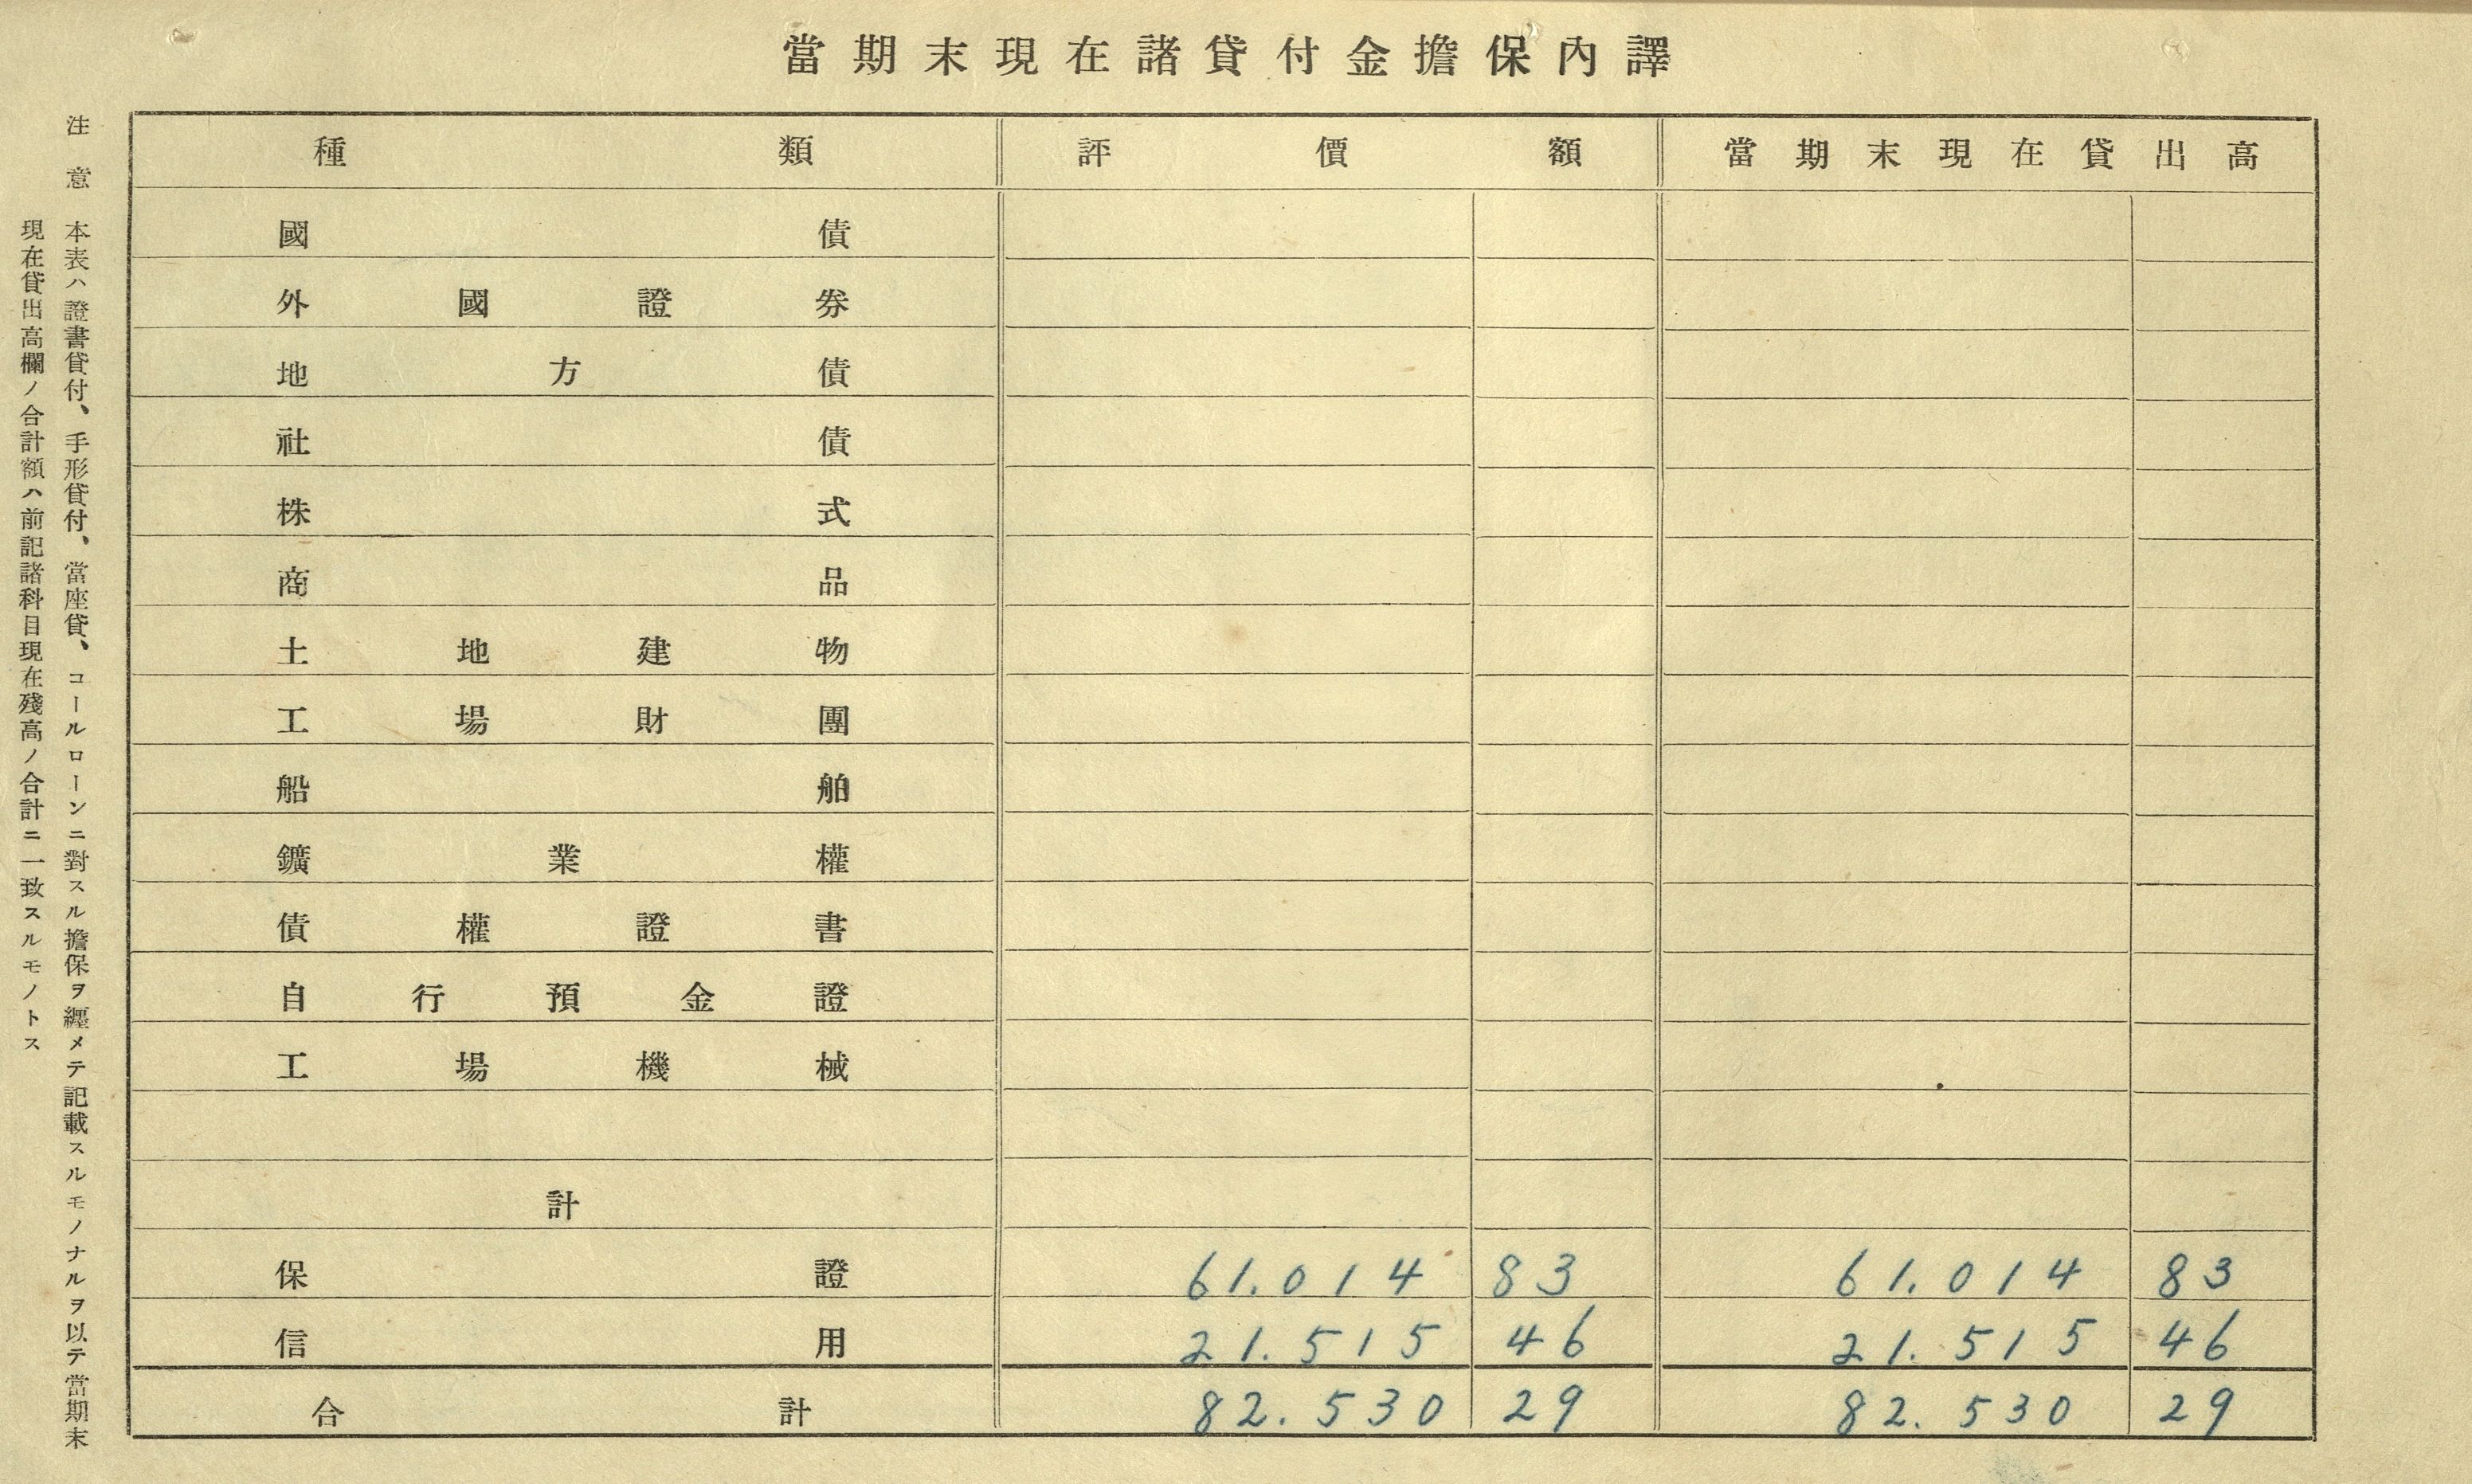 當期末現在諸貸付金擔保內譯
種類 評價額 當期末現在貸出高
國債
外國證券
地方債
社債
株式
商品
土地建物
工場財團
船舶
鑛業權
債權證書
自行預金證
工場機械
計
保證 61.014 83 61.014 83
信用 21.515 46 21.515 46
合計 82.530 29 82.530 29
注意 本表ハ證書貸付、手形貸付、當座貸、コールローンニ對スル擔保ヲ纒メテ記載スルモノナルヲ以テ當期末
現在貸出高欄ノ合計額ハ前記諸科目現在殘高ノ合計ニ一致スルモノトス